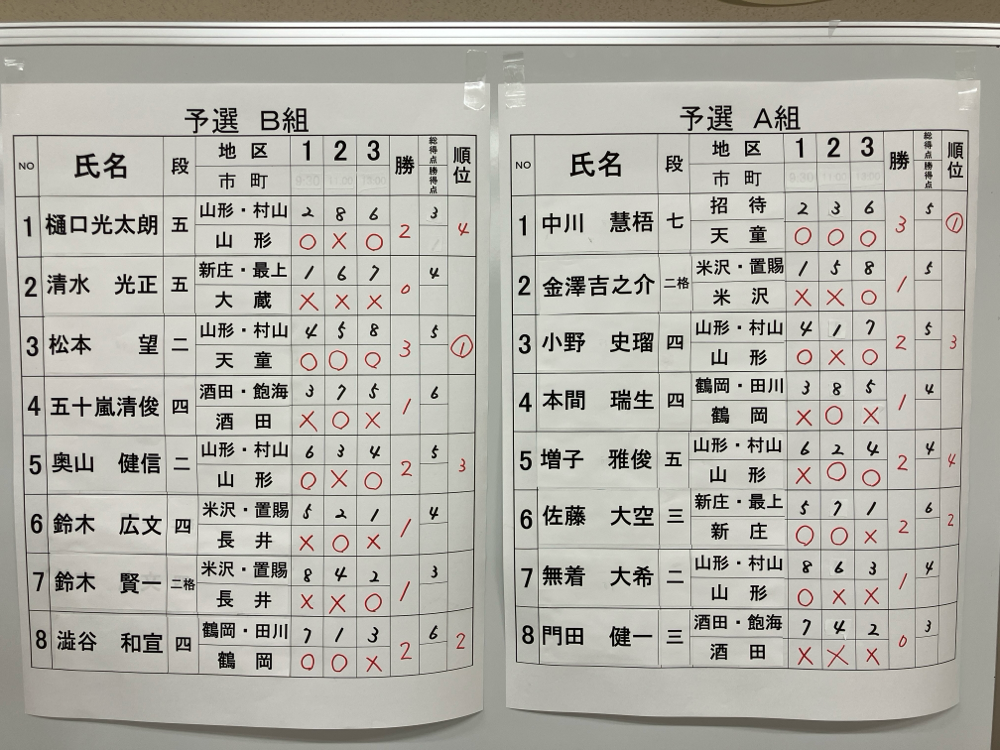 予選 B組
NO 氏名 段 地区 1 2 3 勝 総得点 勝得点 順位
市町 9:30 11:00 13:00
1 樋口光太朗 五 山形・村山 2 8 6 2 3 4
山形 ○ × ○
2 清水 光正 五 新庄・最上 1 6 7 0 4
大蔵 × × ×
3 松本 望 二 山形・村山 4 5 8 3 5 ①
天童 ○ ○ ○
4 五十嵐清俊 四 酒田・飽海 3 7 5 1 6
酒田 × ○ ×
5 奥山 健信 二 山形・村山 6 3 4 2 5 3
山形 ○ × ○
6 鈴木 広文 四 米沢・置賜 5 2 1 1 4
長井 × ○ ×
7 鈴木 賢一 二格 米沢・置賜 8 4 2 1 3
長井 × × ○
8 澁谷 和宣 四 鶴岡・田川 7 1 3 2 6 2
鶴岡 ○ ○ ×
予選 A組
NO 氏名 段 地区 1 2 3 勝 総得点 勝得点 順位
市町 9:30 11:00 13:00
1 中川 慧梧 七 招待 2 3 6 3 5 ①
天童 ○ ○ ○
2 金澤吉之介 二格 米沢・置賜 1 5 8 1 5
米沢 × × ○
3 小野 史瑠 四 山形・村山 4 1 7 2 5 3
山形 ○ × ○
4 本間 瑞生 四 鶴岡・田川 3 8 5 1 4
鶴岡 × ○ ×
5 増子 雅俊 五 山形・村山 6 2 4 2 4 4
山形 × ○ ○
6 佐藤 大空 三 新庄・最上 5 7 1 2 6 2
新庄 ○ ○ ×
7 無着 大希 二 山形・村山 8 6 3 1 4
山形 ○ × ×
8 門田 健一 三 酒田・飽海 7 4 2 0 3
酒田 × × ×